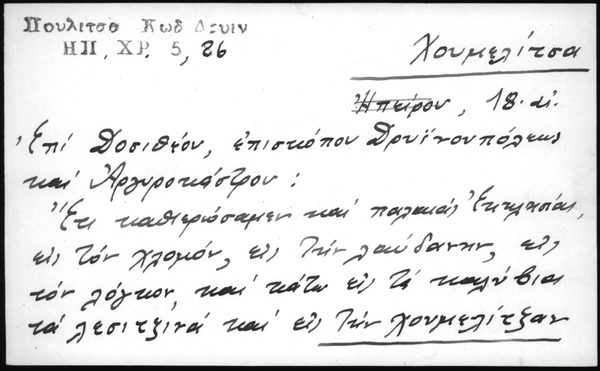 Πουλιτσα Κωδ Δρυιν
ΗΠ. ΧΡ. 5, 86
Χουμελίτσα
Ἠπείρου, 18. αἰ.
Ἐπί Δοσιθέου, ἐπισκόπου Δρυϊνουπόλεως
καί Ἀργυροκάστρου:
Ἔτι καθιερώσαμεν καί παλαιάς Ἐκκλησίας,
εἰς τόν χλομόν, εἰς τήν λαύδανην, εἰς
τόν λόγκον, καί κάτω εἰς τά καλύβια
τά λεσιτζινά καί εἰς τήν χουμελίτζαν